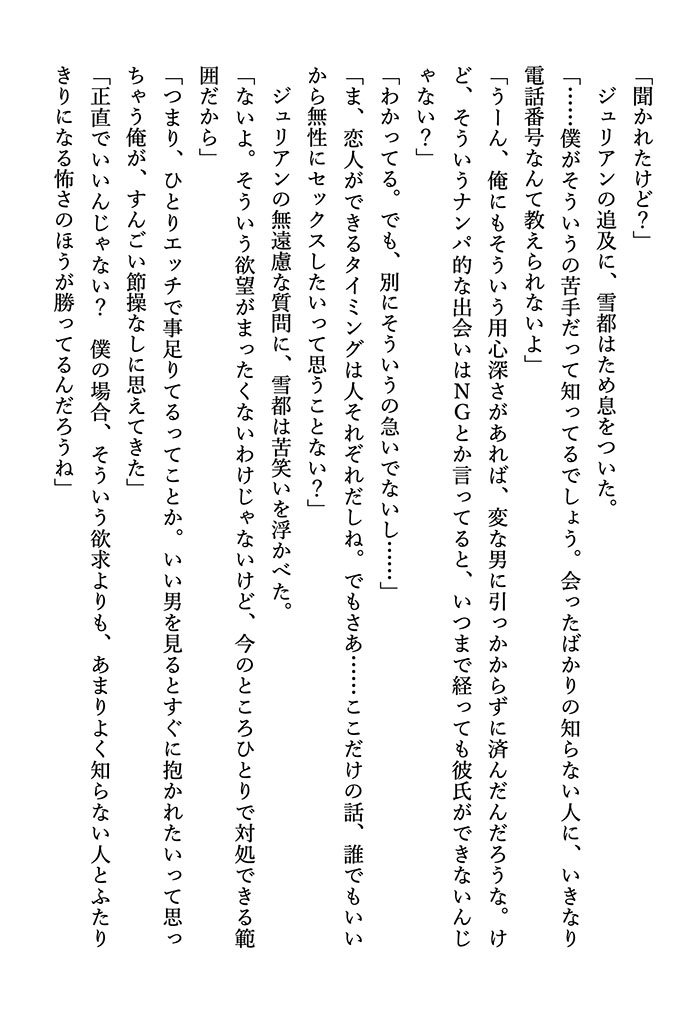 「聞かれたけど？」
　ジュリアンの追及に、雪都はため息をついた。
「……僕がそういうの苦手だって知ってるでしょう。会ったばかりの知らない人に、いきなり
電話番号なんて教えられないよ」
「うーん、俺にもそういう用心深さがあれば、変な男に引っかからずに済んだんだろうな。け
ど、そういうナンパ的な出会いはＮＧとか言ってると、いつまで経っても彼氏ができないんじ
ゃない？」
「わかってる。でも、別にそういうの急いでないし……」
「ま、恋人ができるタイミングは人それぞれだしね。でもさあ……ここだけの話、誰でもいい
から無性にセックスしたいって思うことない？」
　ジュリアンの無遠慮な質問に、雪都は苦笑いを浮かべた。
「ないよ。そういう欲望がまったくないわけじゃないけど、今のところひとりで対処できる範
囲だから」
「つまり、ひとりエッチで事足りてるってことか。いい男を見るとすぐに抱かれたいって思っ
ちゃう俺が、すんごい節操なしに思えてきた」
「正直でいいんじゃない？　僕の場合、そういう欲求よりも、あまりよく知らない人とふたり
きりになる怖さのほうが勝ってるんだろうね」